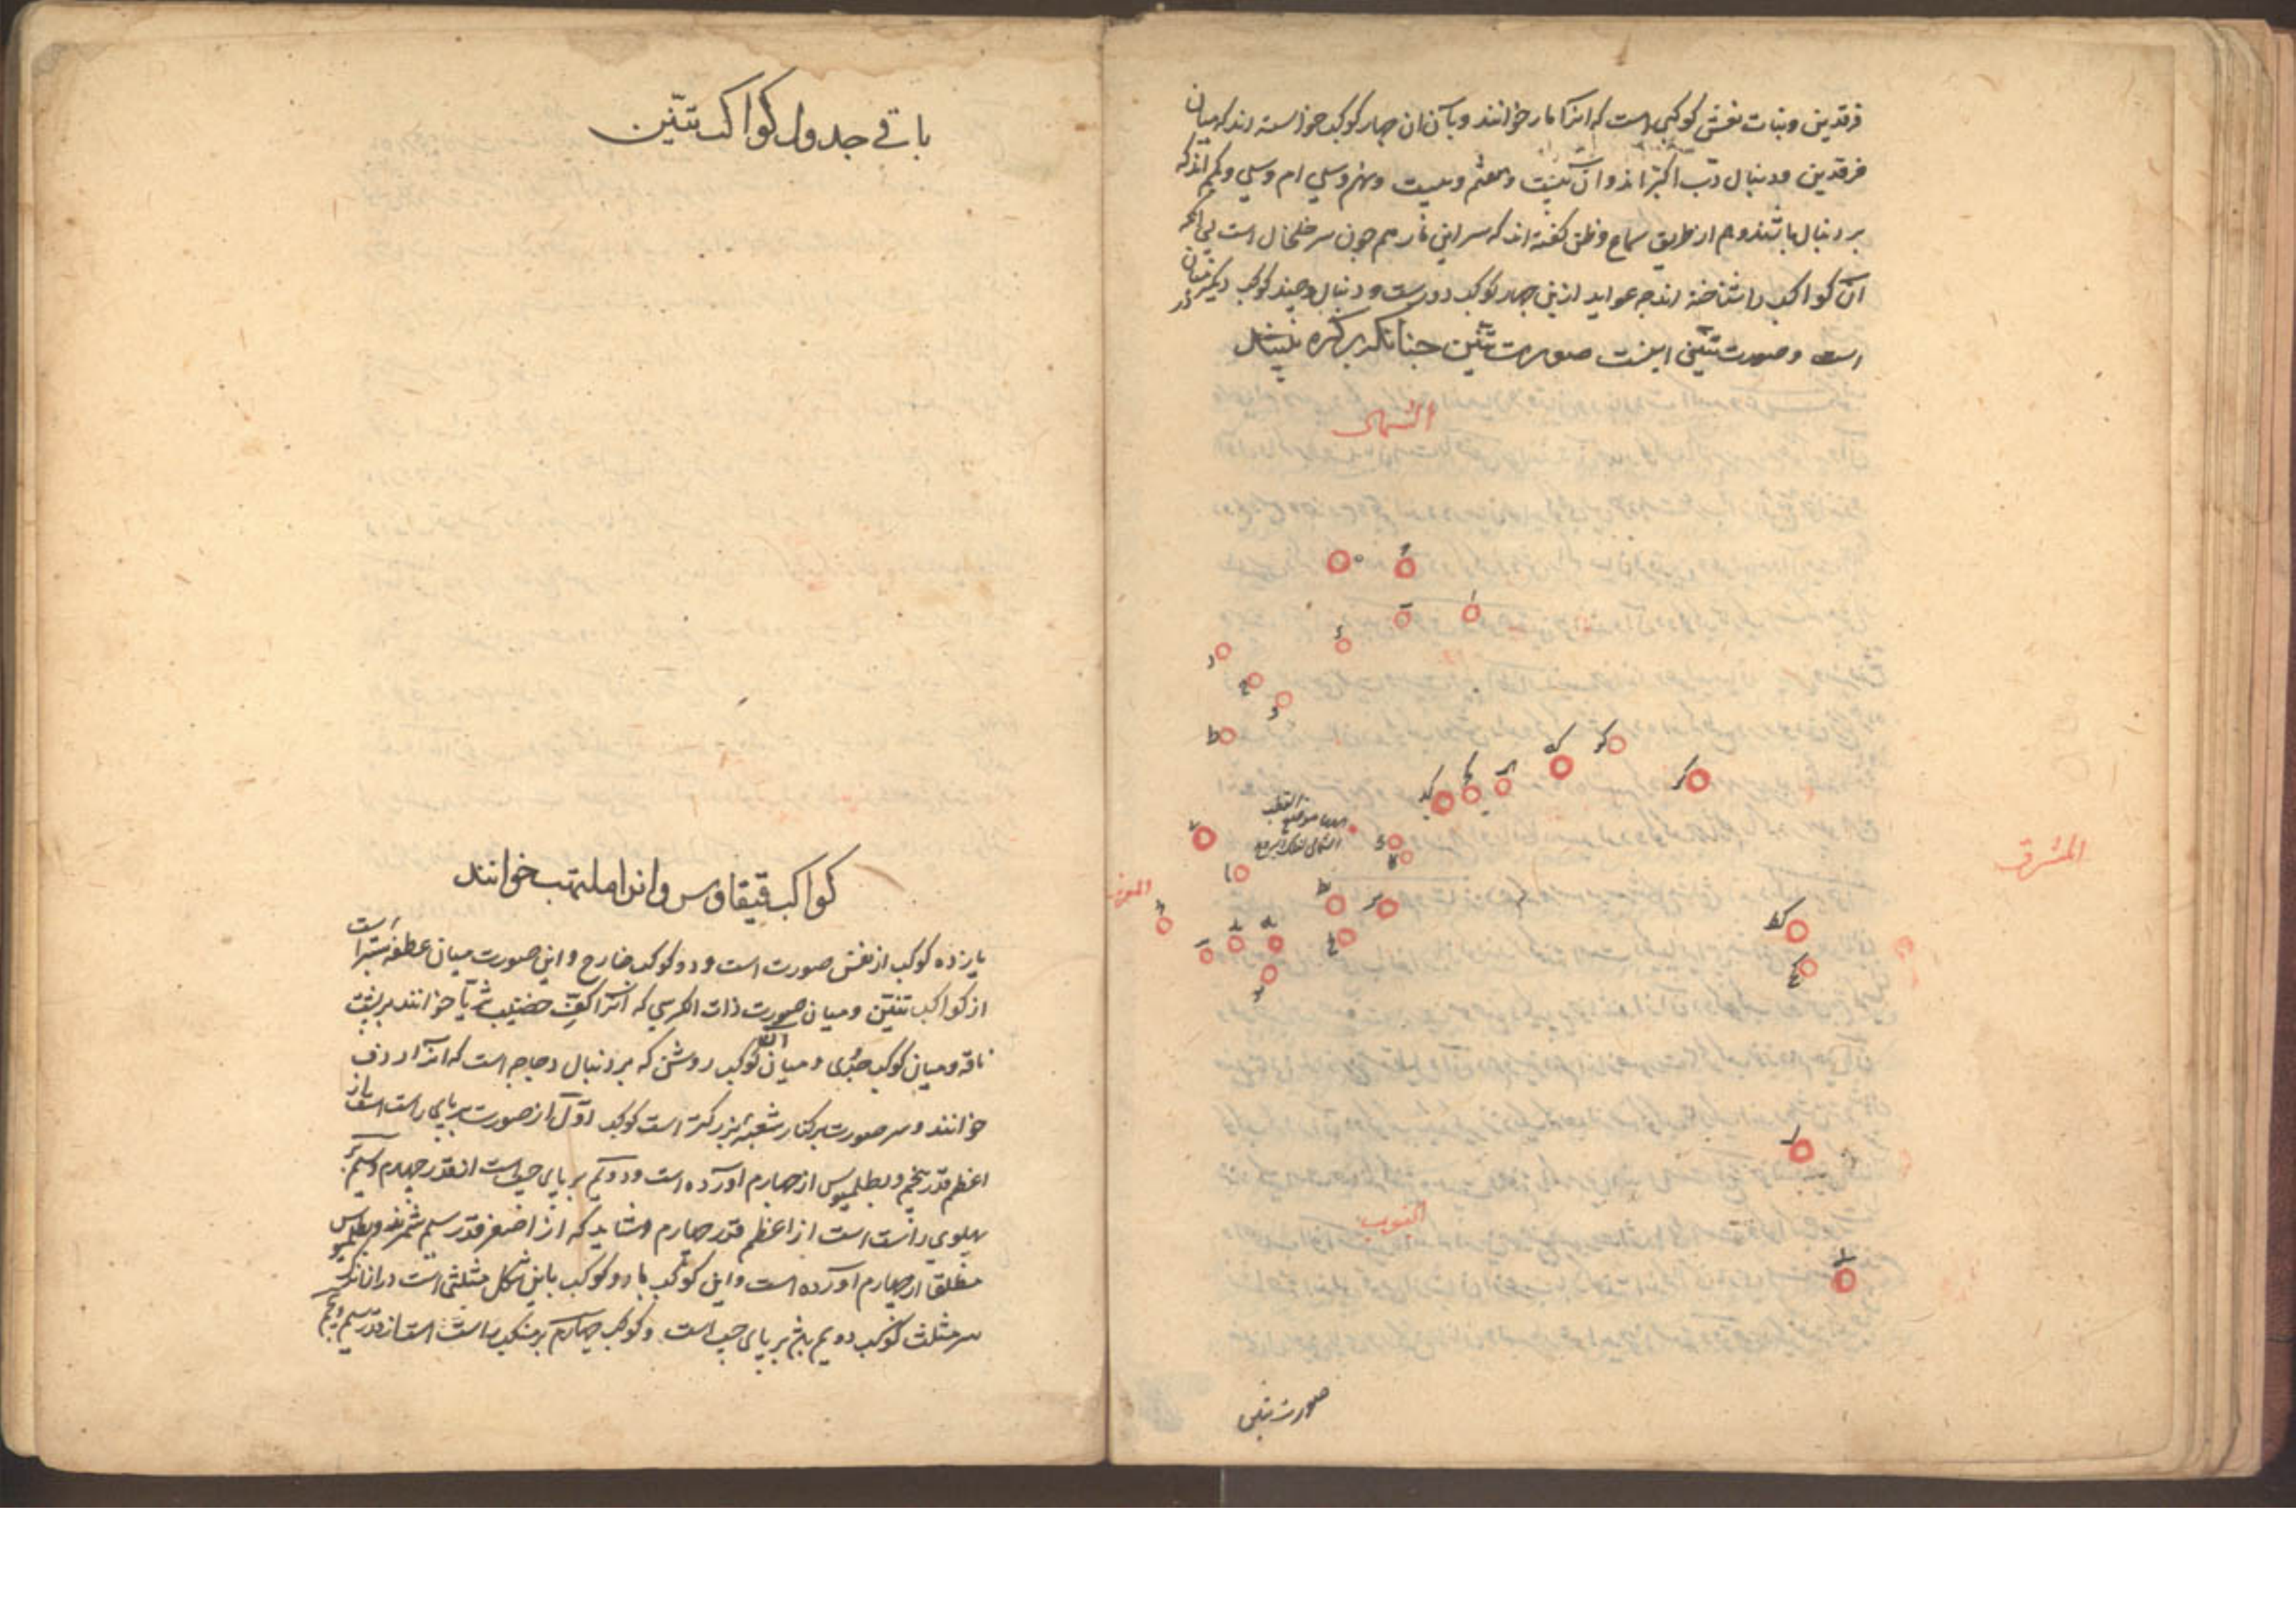 فرقدین و بنات نعش کوکبی است که انرا مار خوانند و بآن ان چهار کوکب خواسته اند که میان
فرقدین و دنبال دب اکبر اند و ان بیست و هفتم و بیست و نهم و سی ام و سی و یکم اند که
بر دنبال باشند و هم از طریق سماع و ظن کفته اند که سر این مار هم چون سر خلخال است بی انکه
ان کواکب را شناخته اند چه عواید ازین چهار کوکب دورست و دنبال و چند کوکب دیکر میان
در
است و صورت تنین اینست صورت تنین چنانکه بر کره بینند
الشمال
المشرق
المغرب
موضع القطب
الشمالی لفلک البروج
الجنوب
صورت تنین
باقی جدول کواکب تنین
کواکب قیقاوس و انرا ملتهب خوانند
یازده کوکب از نفس صورت است و دو کوکب خارج و این صورت میان عطفه است
از کواکب تنین و میان صورت ذات الکرسی که انرا کف خضیب ثریا خوانند بر پشت
ناقه و میان کوکب جدی و میان کوکب روشن که بر دنبال دجاجه است که انرا ردف
خوانند و سر صورت بر کنار شعبه بزرکتر است کوکب اول از صورت بر پای راست است از
اعظم قدر پنجم و بطلمیوس از چهارم اورده است و دویم بر پای چپ است از قدر چهارم و سیم بر
پهلوی راست است از اعظم قدر چهارم و شاید که از اصغر قدر سیم شمرند و بطلمیوس
مطلقا از چهارم اورده است و این کوکب با دو کوکب باین شکل مثلثی است دراز انکه
سر مثلث کوکب دویم بر پای چپ است و کوکب چهارم بر منکب راست است از قدر سیم و پنجم